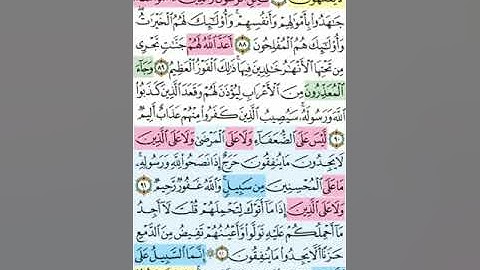 جَٰهَدُوا۟ بِأَمْوَٰلِهِمْ وَأَنفُسِهِمْ ۚ وَأُو۟لَٰٓئِكَ لَهُمُ ٱلْخَيْرَٰتُ ۖ
وَأُو۟لَٰٓئِكَ هُمُ ٱلْمُفْلِحُونَ ٨٨ أَعَدَّ ٱللَّهُ لَهُمْ جَنَّٰتٍ تَجْرِى
مِن تَحْتِهَا ٱلْأَنْهَٰرُ خَٰلِدِينَ فِيهَا ۚ ذَٰلِكَ ٱلْفَوْزُ ٱلْعَظِيمُ ٨٩ وَجَآءَ
ٱلْمُعَذِّرُونَ مِنَ ٱلْأَعْرَابِ لِيُؤْذَنَ لَهُمْ وَقَعَدَ ٱلَّذِينَ كَذَبُوا۟
ٱللَّهَ وَرَسُولَهُۥ ۚ سَيُصِيبُ ٱلَّذِينَ كَفَرُوا۟ مِنْهُمْ عَذَابٌ أَلِيمٌ
٩٠ لَّيْسَ عَلَى ٱلضُّعَفَآءِ وَلَا عَلَى ٱلْمَرْضَىٰ وَلَا عَلَى ٱلَّذِينَ
لَا يَجِدُونَ مَا يُنفِقُونَ حَرَجٌ إِذَا نَصَحُوا۟ لِلَّهِ وَرَسُولِهِۦ ۚ
مَا عَلَى ٱلْمُحْسِنِينَ مِن سَبِيلٍ ۚ وَٱللَّهُ غَفُورٌ رَّحِيمٌ ٩١
وَلَا عَلَى ٱلَّذِينَ إِذَا مَآ أَتَوْكَ لِتَحْمِلَهُمْ قُلْتَ لَآ أَجِدُ
مَآ أَحْمِلُكُمْ عَلَيْهِ تَوَلَّوا۟ وَّأَعْيُنُهُمْ تَفِيضُ مِنَ ٱلدَّمْعِ
حَزَنًا أَلَّا يَجِدُوا۟ مَا يُنفِقُونَ ٩٢ إِنَّمَا ٱلسَّبِيلُ عَلَى